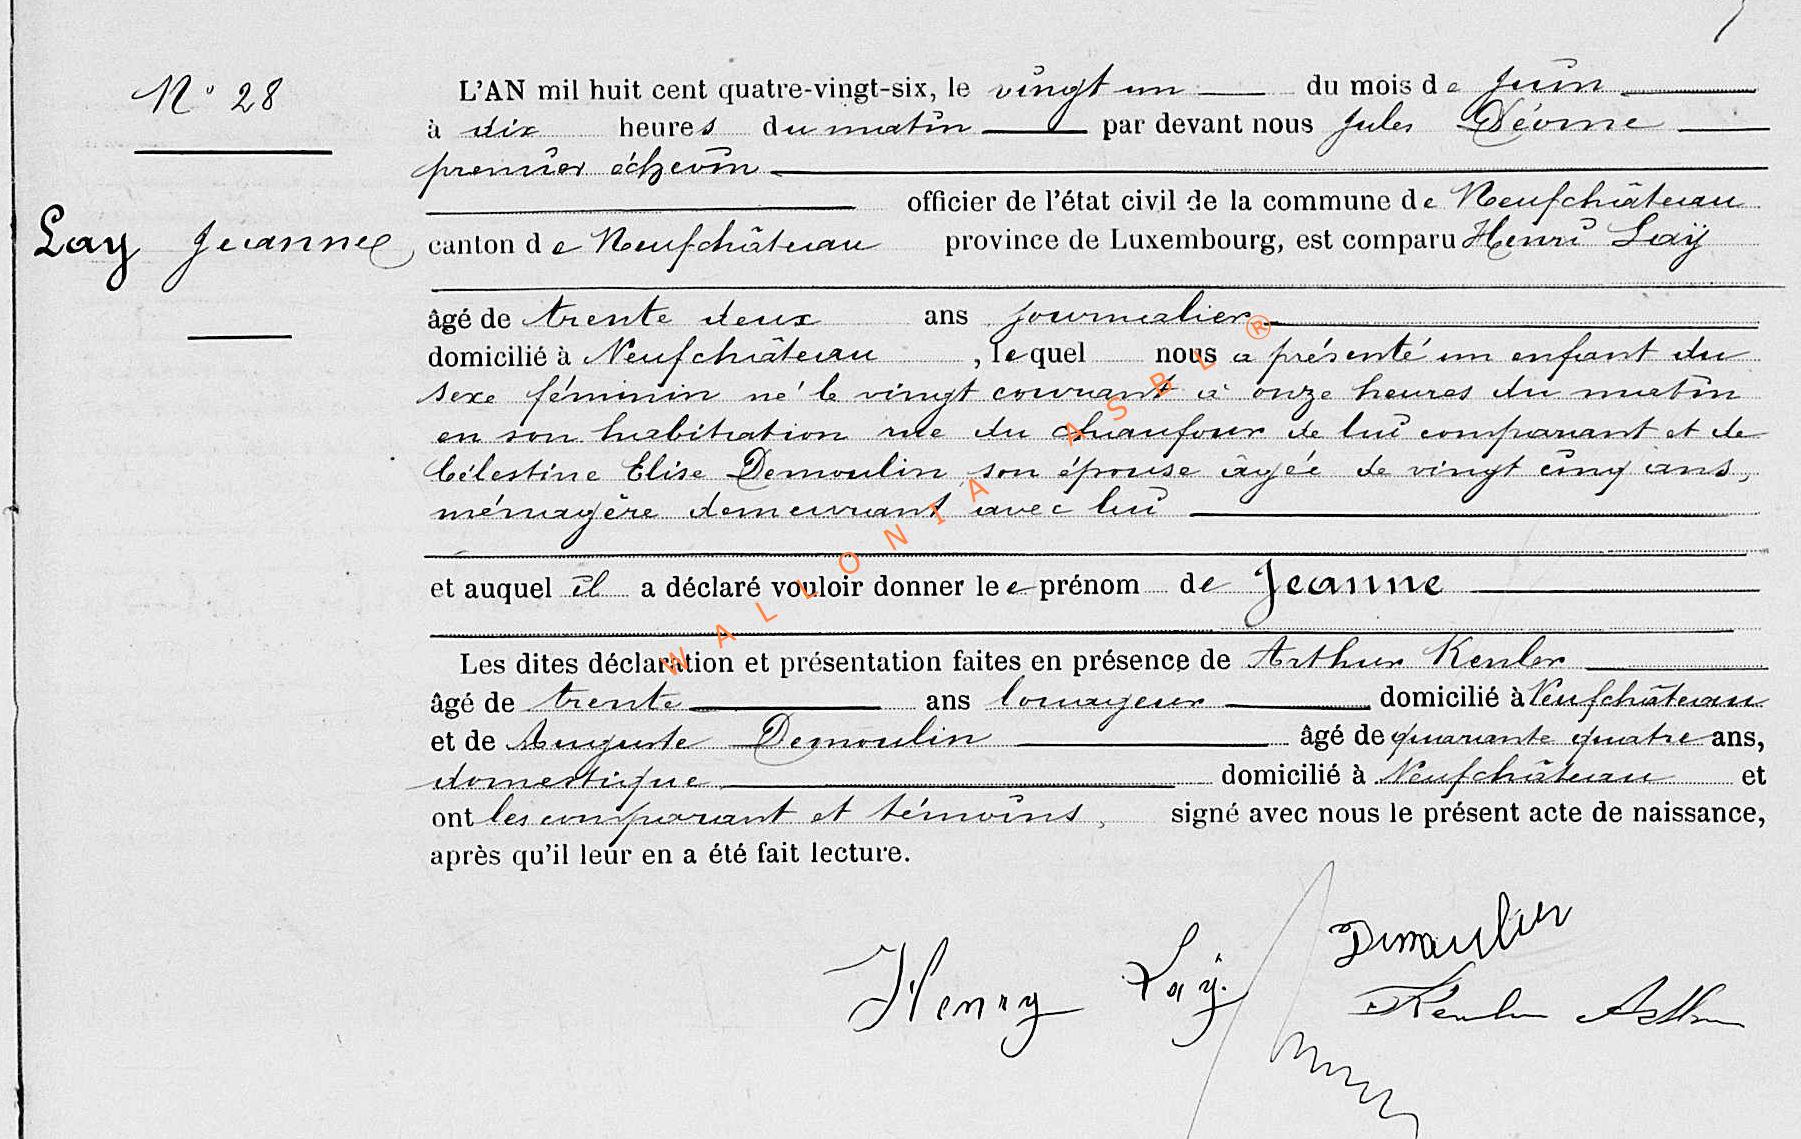 N° 28
Lay Jeanne
L'AN mil huit cent quatre-vingt-six, le vingt un du mois de Juin
à dix heures du matin par devant nous Jules Déome
premier échevin
officier de l'état civil de la commune de Neufchâteau
canton de Neufchâteau province de Luxembourg, est comparu Henri Laÿ
âgé de trente deux ans journalier
domicilié à Neufchâteau, lequel nous a présenté un enfant du
sexe féminin né le vingt courant à onze heures du matin
en son habitation rue du chaufour de lui comparant et de
Célestine Elise Demoulin, son épouse âgée de vingt cinq ans,
ménagère demeurant avec lui
et auquel il a déclaré vouloir donner le prénom de Jeanne
Les dites déclaration et présentation faites en présence de Arthur Kenler
âgé de trente ans louageur domicilié à Neufchâteau
et de Auguste Demoulin âgé de quarante quatre ans,
domestique domicilié à Neufchâteau et
ont les comparant et témoins, signé avec nous le présent acte de naissance,
après qu'il leur en a été fait lecture.
Henry Laÿ. Demoulin
Arthur
WALLONIA ASBL ®